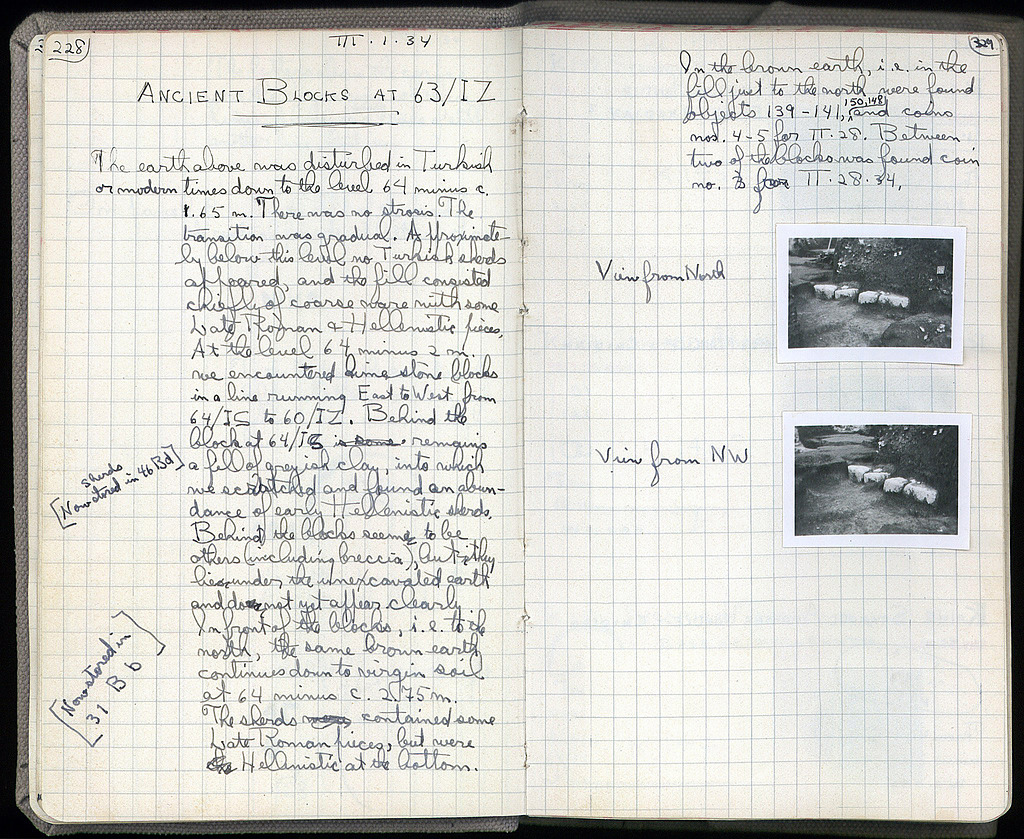 228
III . 1 . 34
ANCIENT BLOCKS AT 63/IZ
The earth above was disturbed in Turkish
or modern times down to the level 64 minus c.
1.65 m. There was no strosis. The
transition was gradual. Approximate-
ly below this level no Turkish sherds
appeared, and the fill consisted
chiefly of coarse ware with some
Late Roman & Hellenistic pieces.
At the level 64 minus 2 m.
we encountered lime stone blocks
in a line running East to West from
64/IS to 60/IZ. Behind the
block at 64/IS is some remains
a fill of greyish clay, into which
we scratched and found an abun-
dance of early Hellenistic sherds.
Behind the blocks seems to be
others (including breccia), but they
lie under the unexcavated earth
and do not yet appear clearly.
In front of the blocks, i.e. to the
north, the same brown earth
continues down to virgin soil
at 64 minus c. 2.75 m.
The sherds contained some
Late Roman pieces, but were
Hellenistic at the bottom.
sherds
[Now stored in 46 Bd]
[Now stored in
31 B b]
329
In the brown earth, i.e. in the
fill just to the north were found
150, 148
objects 139-141, and coins
nos. 4-5 for II.28. Between
two of the blocks was found coin
no. 3 for II.28.34.
View from North
View from NW